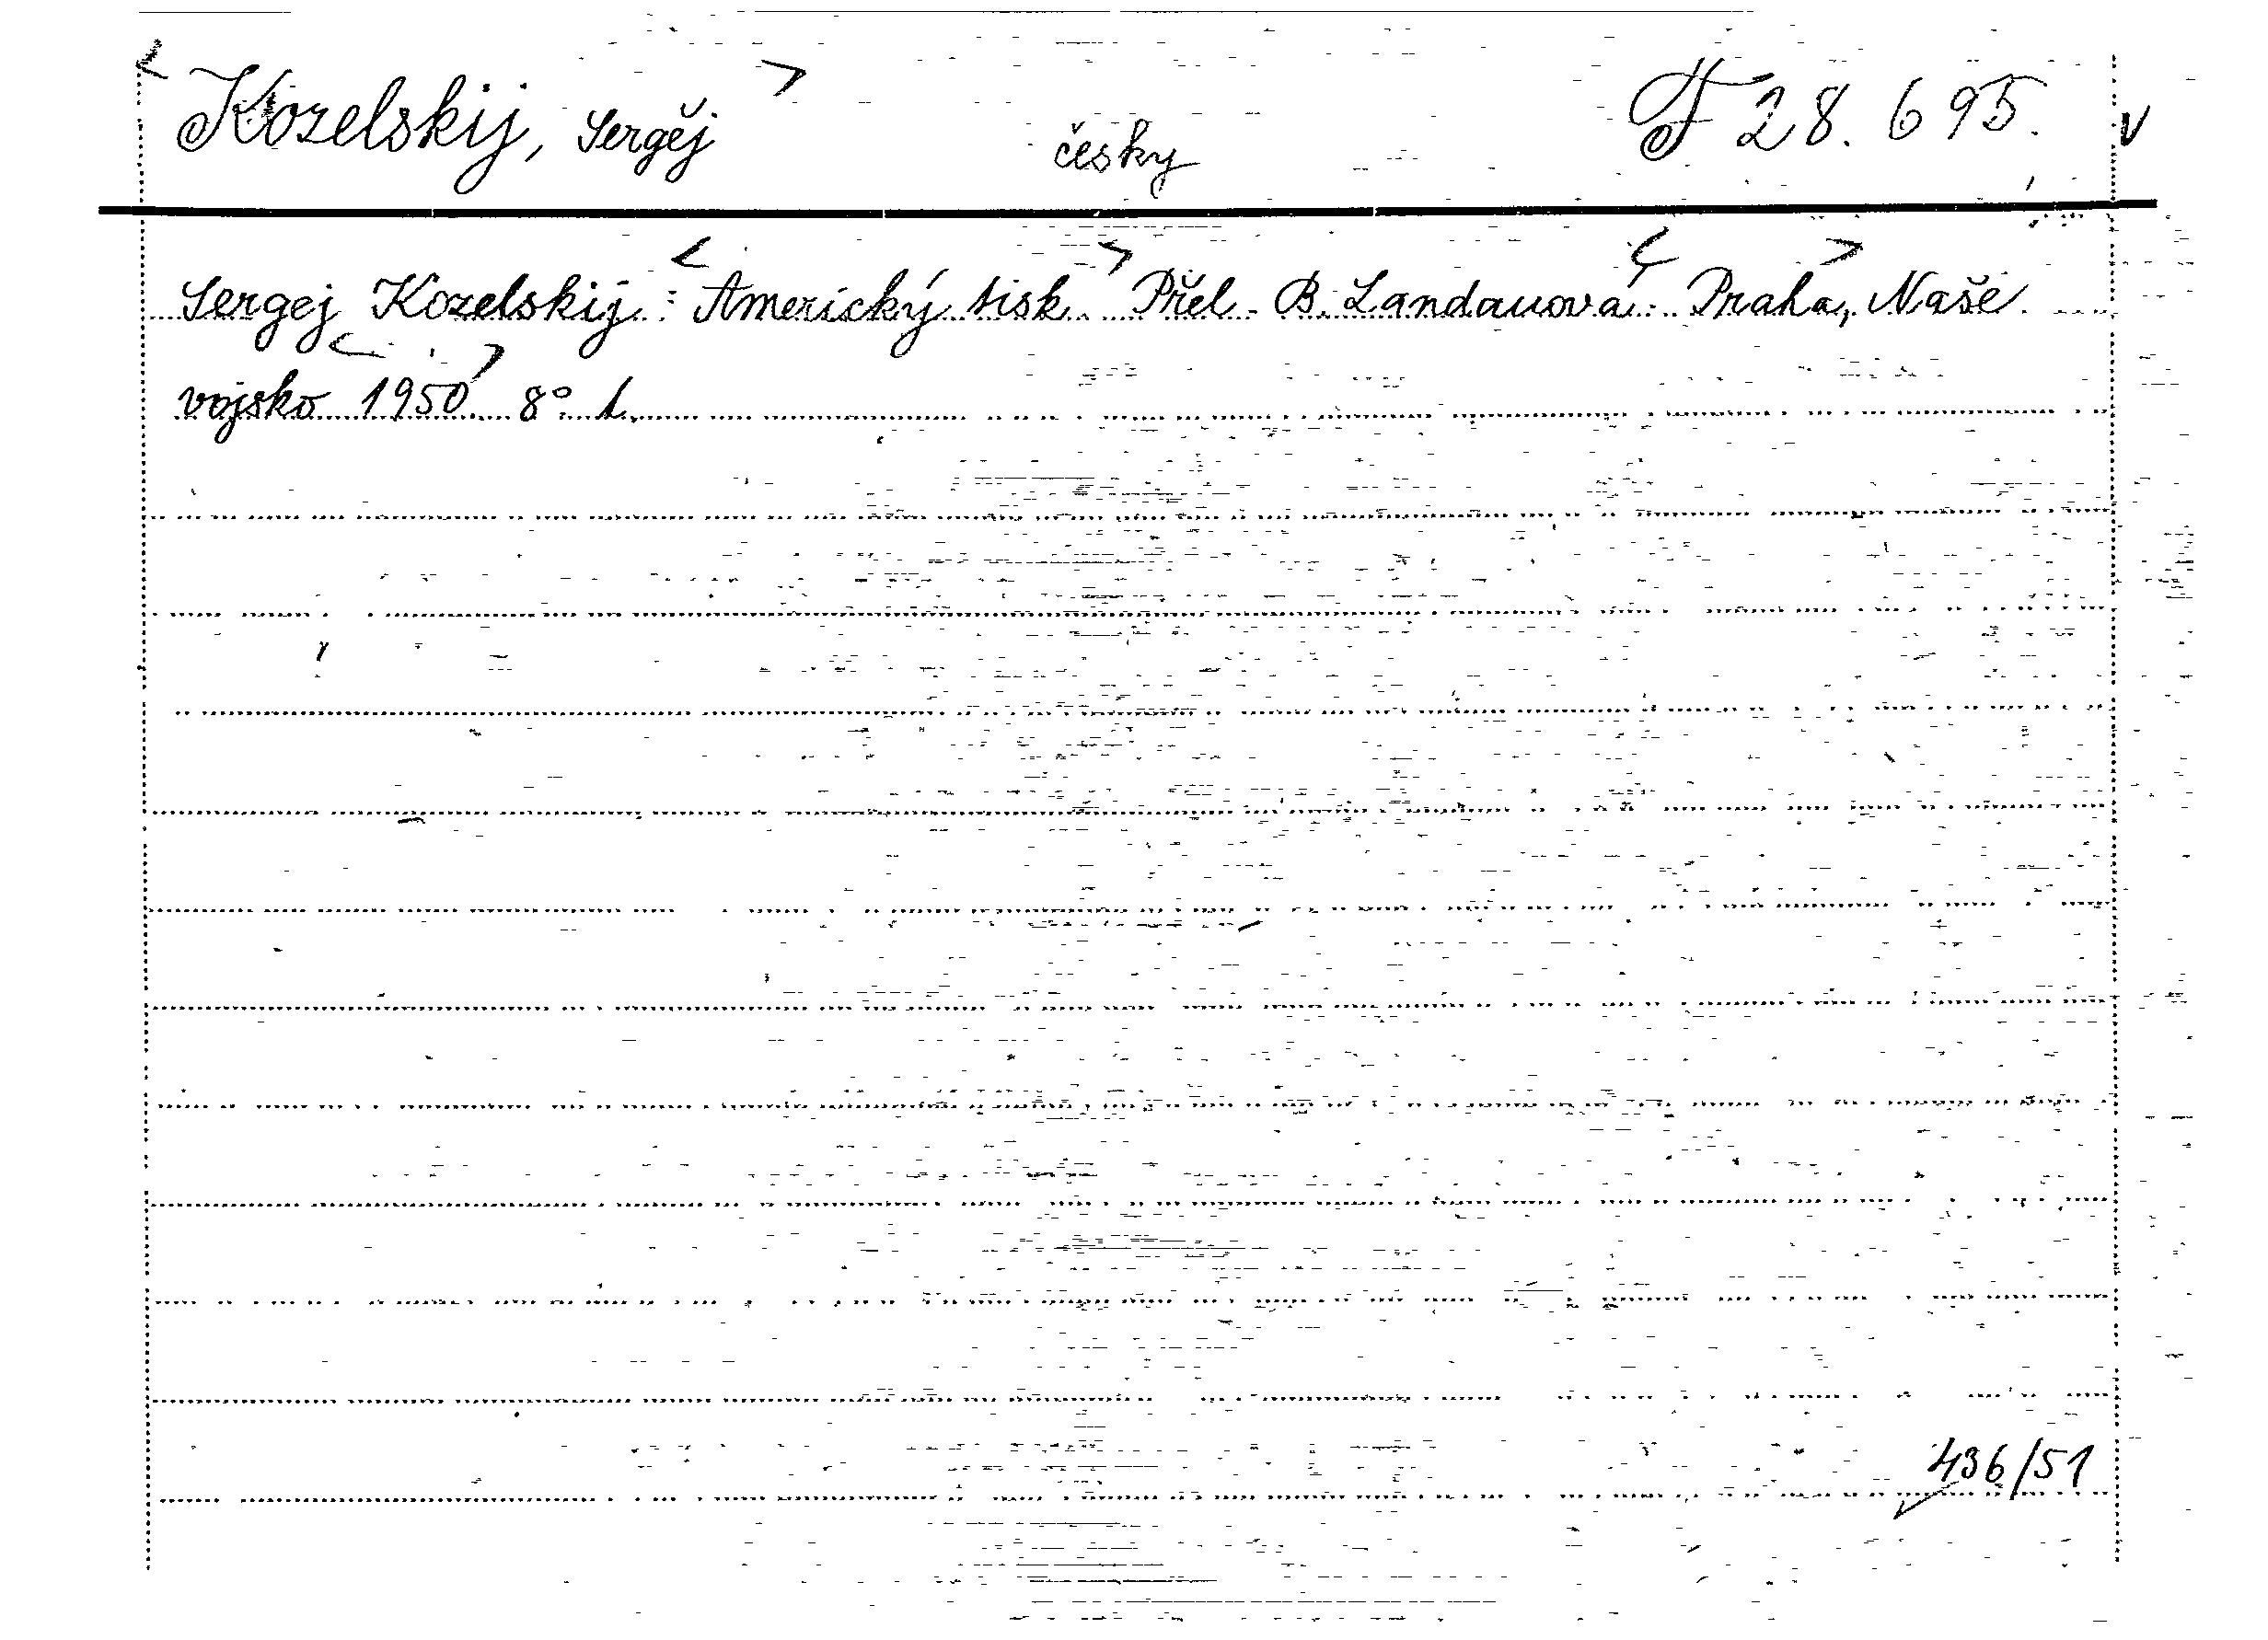 < Kozelskij, Sergěj > česky F 28.695. v
Sergej Kozelskij: < Americký tisk > Přel. B. Landauová. < Praha, > Naše
vojsko < 1950 > 8° 1.
436/51